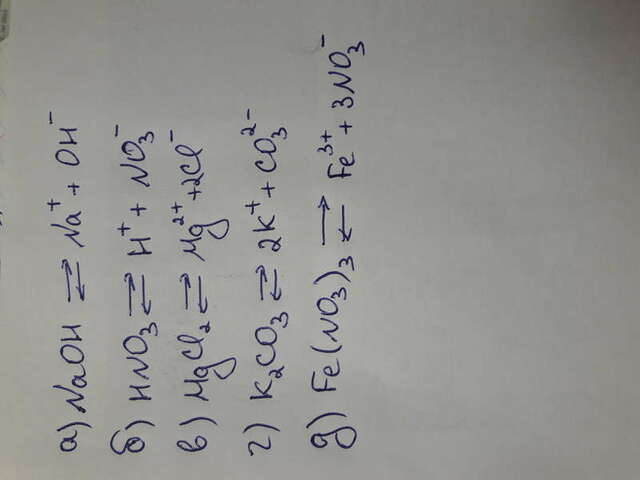 а) NaOH ⇄ Na⁺ + OH⁻
б) HNO₃ ⇄ H⁺ + NO₃⁻
в) MgCl₂ ⇄ Mg²⁺ + 2Cl⁻
г) K₂CO₃ ⇄ 2K⁺ + CO₃²⁻
д) Fe(NO₃)₃ ⇄ Fe³⁺ + 3NO₃⁻